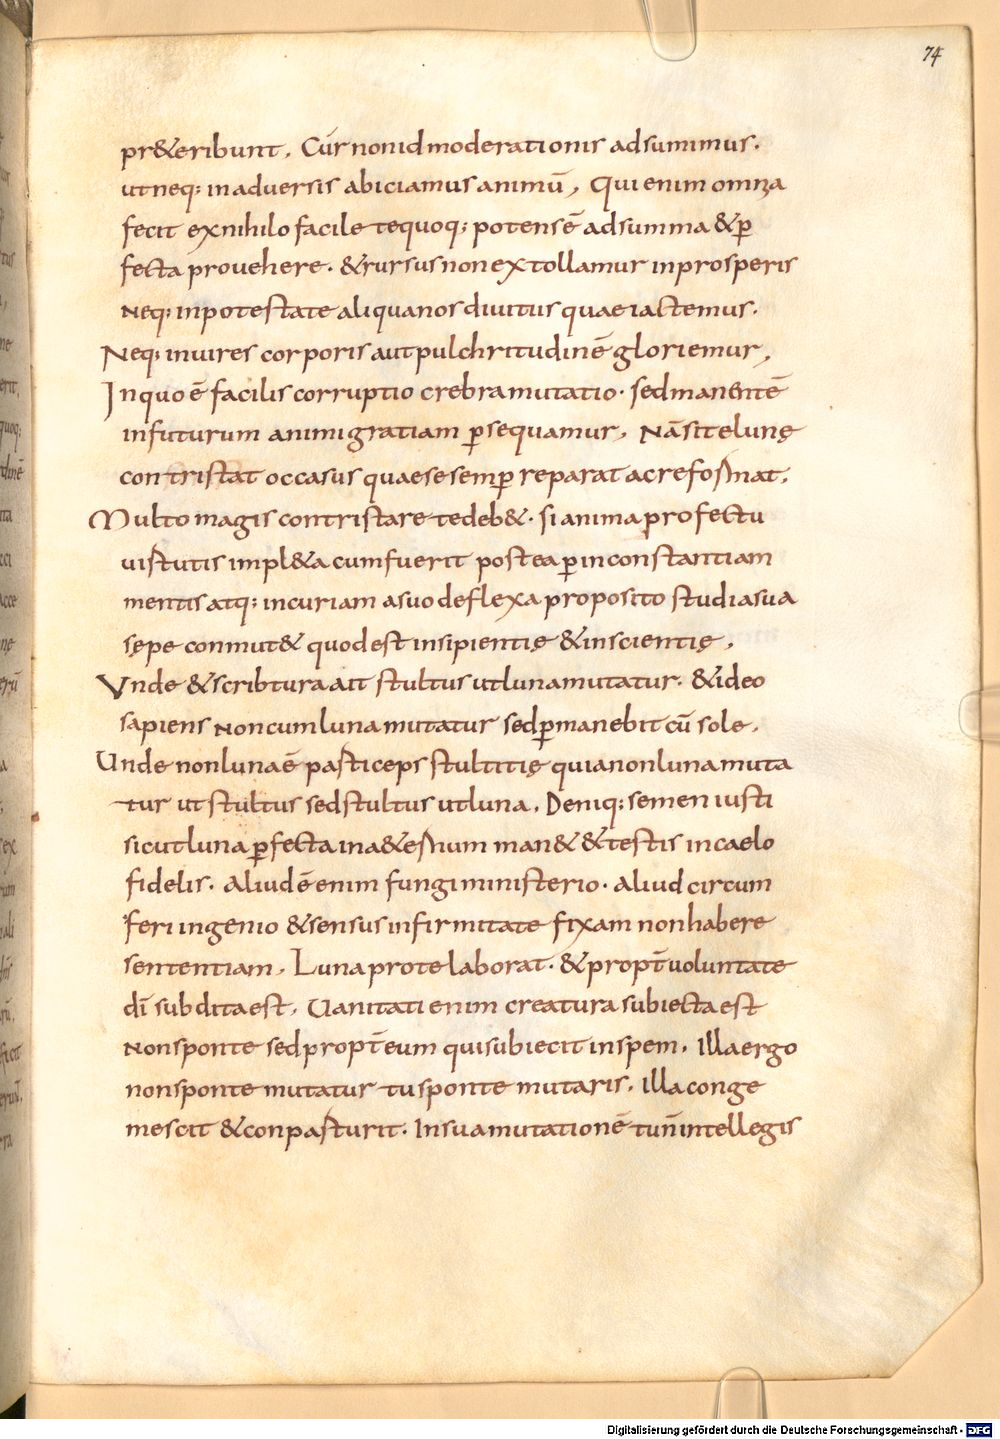 74
pr&eribunt. Cur nonid moderationis adsumimus.
utneq; inaduersis abiciamus animū, Qui enim omnia
fecit exnihilo facile tequoq; potensē adsumma &ꝑ
fecta prouehere. &rursus non extollamur inprosperis
Neq; inpotestate aliquanos diuitiis quae iactemus.
Neq; inuires corporis aut pulchritudinē gloriemur,
In quo ē facilis corruptio crebra mutatio. sed manentē
infuturum animi gratiam ꝑsequamur, Nā site lunę
contristat occasus quaese semꝑ reparat ac reformat.
Multo magis contristare te deb&. si anima profectu
uirtutis impl&a cum fuerit postea ꝑ inconstantiam
mentis atq; incuriam asuo deflexa proposito studia sua
sępe conmut& quod est insipientię &inscientię,
Vnde &scribtura ait stultus utluna mutatur. &ideo
sapiens Noncum luna mutatur sed ꝑmanebit cū sole.
Unde non luna ē particeps stultitię quia non luna muta
tur ut stultus sed stultus utluna. Deniq; semen iusti
sicut luna ꝑfecta in a&ernum man& &testis incaelo
fidelis. Aliud ē enim fungi ministerio. aliud circum
feri ingenio &sensus infirmitate fixam non habere
sententiam. Luna prote laborat. &propt̄ uoluntate
dī subdita est. Uanitati enim creatura subiecta est
Nonsponte sed propt̄ eum qui subiecit inspem. Illa ergo
nonsponte mutatur tu sponte mutaris. Illa conge
mescit &conparturit. Insua mutationē tu n̄ intellegis
Digitalisierung gefördert durch die Deutsche Forschungsgemeinschaft - DFG